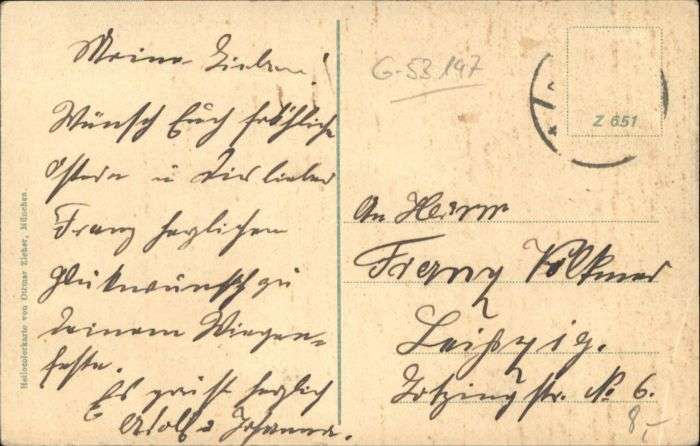 Meine Lieben!
Wünsch Euch fröhliche
Ostern u Dir lieber
Franz herzlichen
Glükwünsch zu
Deinem Wiegen=
feste.
Es grüßt herzlich
Adolf u Johanna.
Heliocolorkarte von Ottmar Zieher, München.
G-53 147
Z 651
An Herrn
Franz Volkmar
Leipzig.
str. No 6.
8-